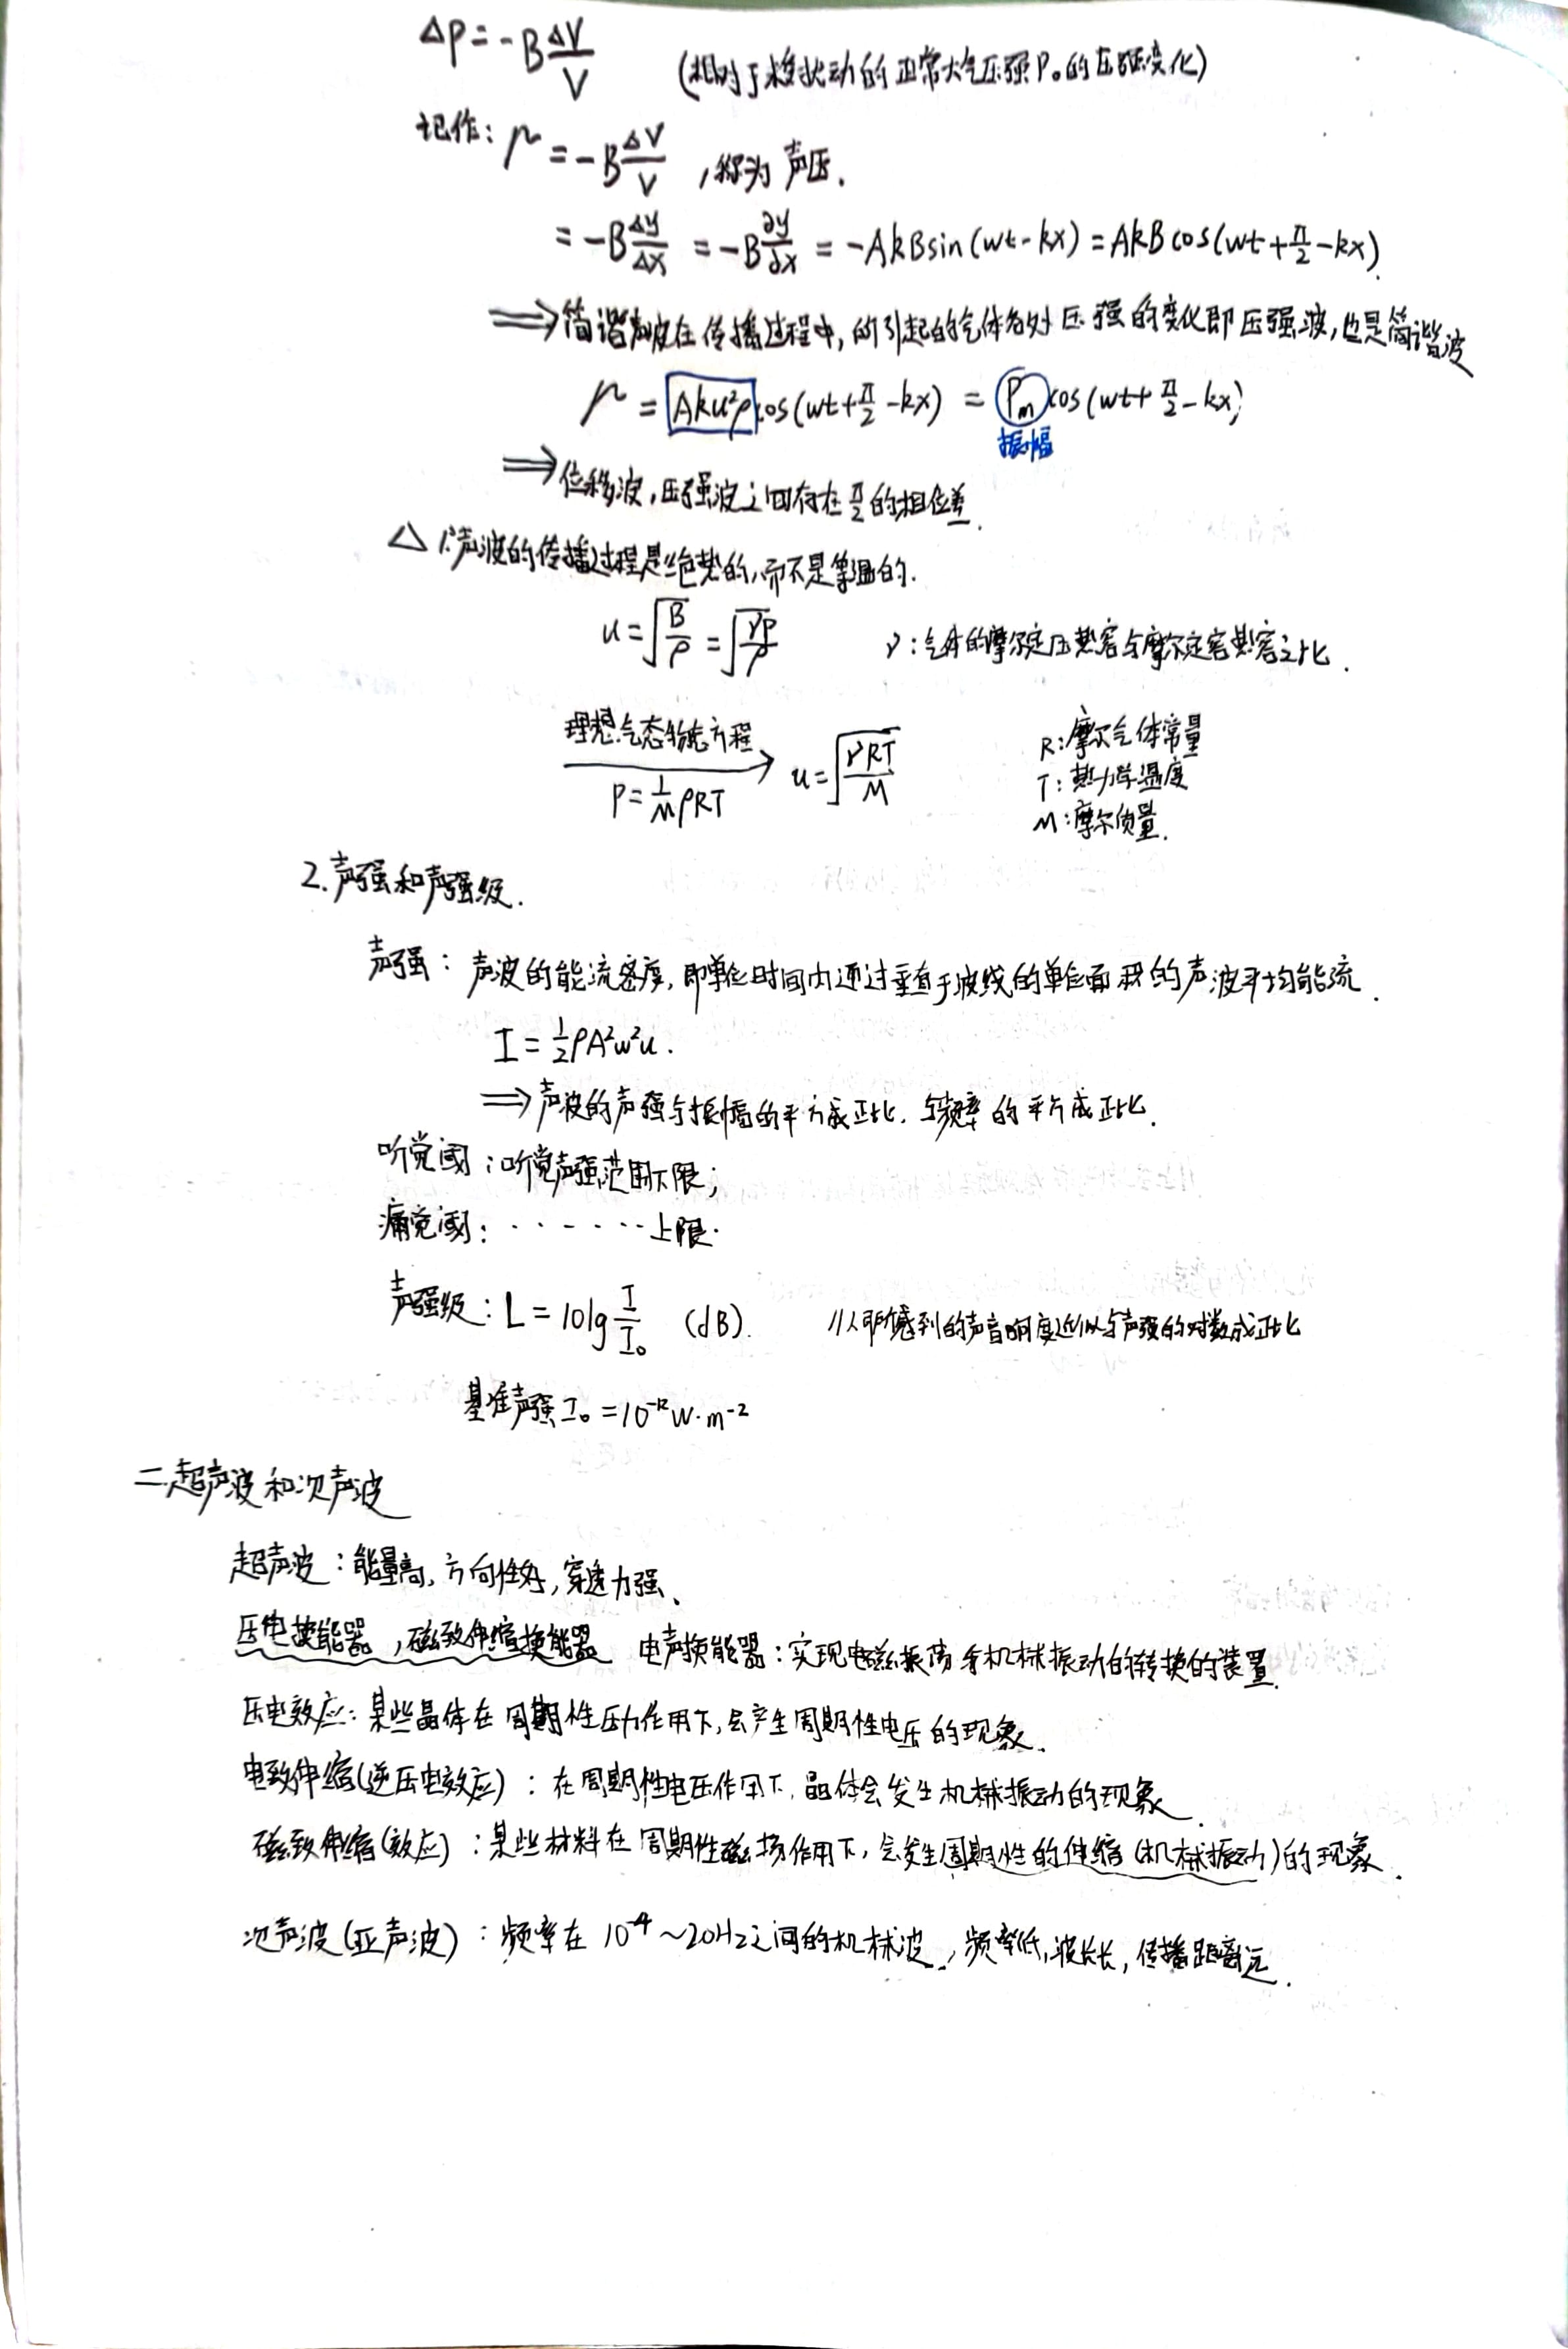 ΔP = -B ΔV/V (相对于未扰动的正常大气压强P₀的压强变化)
记作: p = -B ΔV/V , 称为声压.
= -B Δy/Δx = -B ∂y/∂x = -AkB sin(wt-kx) = AkB cos(wt+π/2-kx)
⟹ 简谐声波在传播过程中, 所引起的气体各处压强的变化即压强波, 也是简谐波
p = Aku²ρ cos(wt+π/2-kx) = Pm cos(wt+π/2-kx)
振幅
⟹ 位移波, 压强波之间存在π/2的相位差.
△ 1.声波的传播过程是绝热的, 而不是等温的.
u = √(B/ρ) = √(γP/ρ) γ: 气体的摩尔定压热容与摩尔定容热容之比.
理想气态物态方程 R: 摩尔气体常量
P = 1/M ρRT → u = √(γRT/M) T: 热力学温度
M: 摩尔质量.
2. 声强和声强级.
声强: 声波的能流密度, 即单位时间内通过垂直于波线的单位面积的声波平均能流.
I = ½ρA²w²u.
⟹ 声波的声强与振幅的平方成正比. 与频率的平方成正比.
听觉阈: 听觉声强范围下限;
痛觉阈: · · · - · · · 上限.
声强级: L = 10lg I/I₀ (dB). //人耳感到的声音响度近似与声强的对数成正比
基准声强 I₀ = 10⁻¹² W·m⁻²
二.超声波和次声波
超声波: 能量高, 方向性好, 穿透力强、
压电换能器, 磁致伸缩换能器 电声换能器: 实现电磁振荡与机械振动的转换的装置.
压电效应: 某些晶体在周期性压力作用下, 会产生周期性电压的现象.
电致伸缩(逆压电效应): 在周期性电压作用下, 晶体会发生机械振动的现象.
磁致伸缩(效应): 某些材料在周期性磁场作用下, 会发生周期性的伸缩(机械振动)的现象.
次声波(亚声波): 频率在 10⁻⁴~20Hz之间的机械波., 频率低, 波长长, 传播距离远.